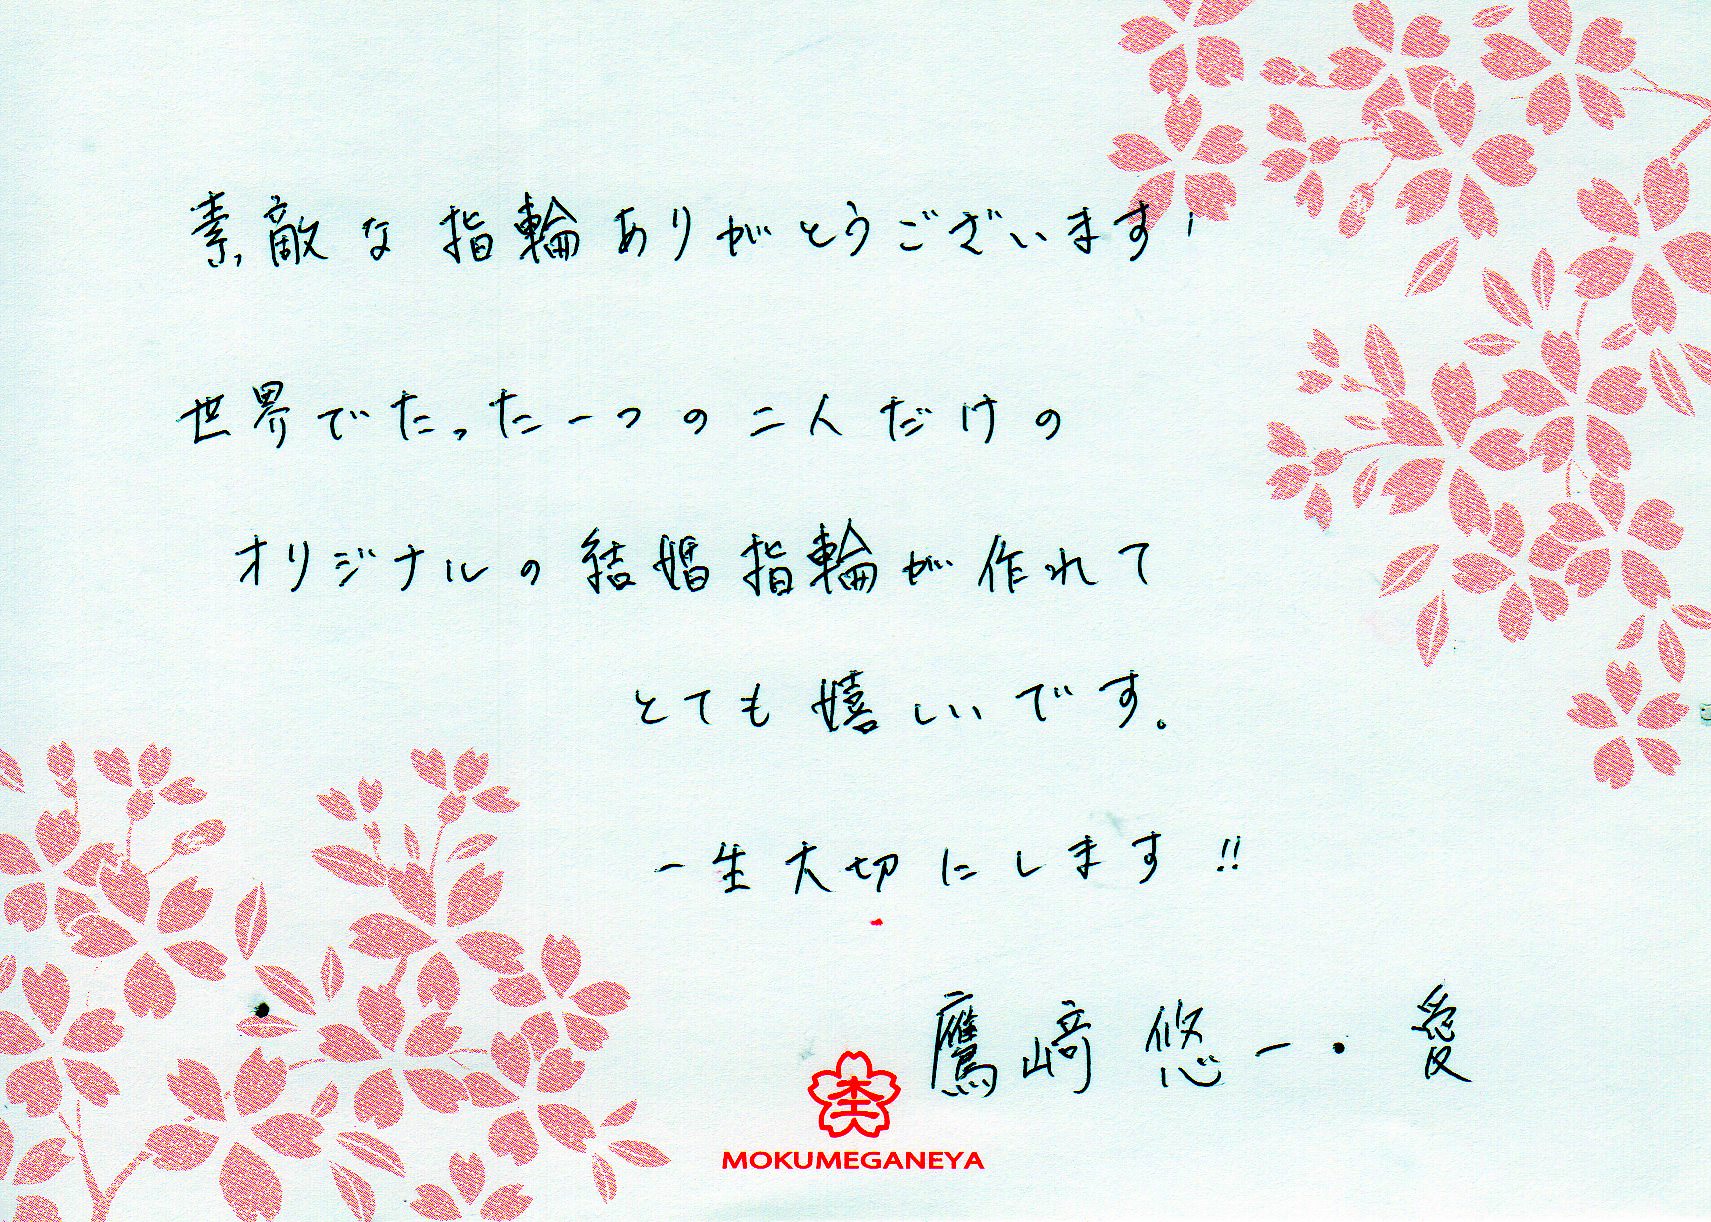 素敵な指輪ありがとうございます!
世界でたった一つの二人だけの
オリジナルの結婚指輪が作れて
とても嬉しいです。
一生大切にします!!
鷹﨑 悠一・愛
MOKUMEGANEYA